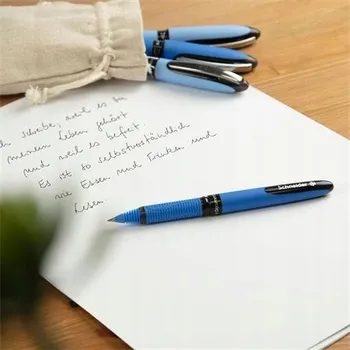 Ich schreibe, weil es zu
meinem Leben gehört
und weil es befreit
Es ist so selbstverständlich
wie Essen und Trinken und
Lesen
Schneider